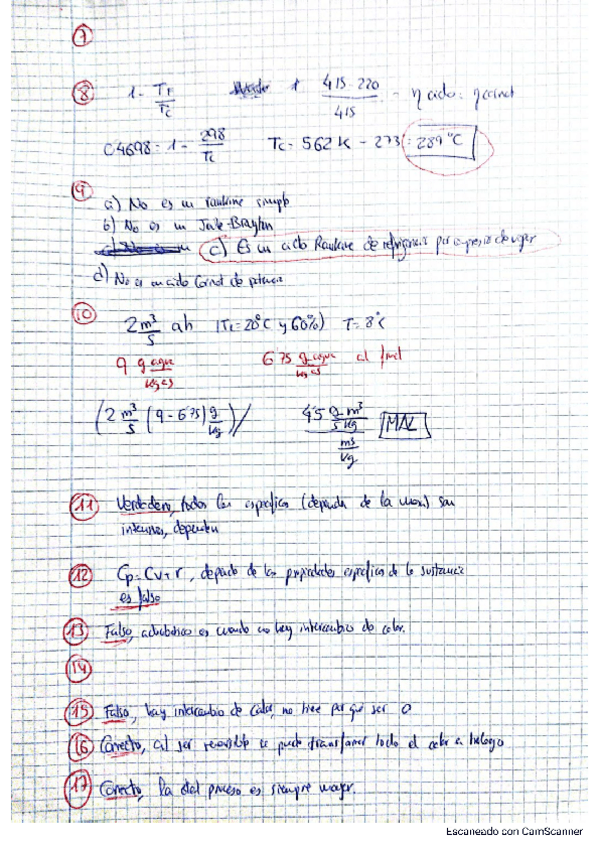 7
8 1 - Tf/Tc 415-220/415 - η ciclo = η carnot
0'4698 = 1 - 298/Tc Tc = 562 K - 273 = 289 °C
9 a) No es un rankine simple
b) No es un Joule-Brayton
c) Es un ciclo Rankine de refrigeración por compresión de vapor
d) No es un ciclo Carnot de potencia
10 2 m³/s ah (T1 = 20°C y 60%) T = 8°C
9 g agua/kg as 6'75 g agua/kg as al final
(2 m³/s (9 - 6'75) g/kg)/ 4'5 g m³/s kg / m³/kg MAL
11 Verdadero, todos las específicas (dependen de la masa) son
intensivas, dependen
12 Cp = Cv + r, depende de las propiedades específicas de la sustancia
es falso
13 Falso, adiabático es cuando no hay intercambio de calor.
14
15 Falso, hay intercambio de calor, no tiene por qué ser 0
16 Correcto, al ser reversible se puede transformar todo el calor a trabajo
17 Correcto, la del proceso es siempre mayor.
Escaneado con CamScanner